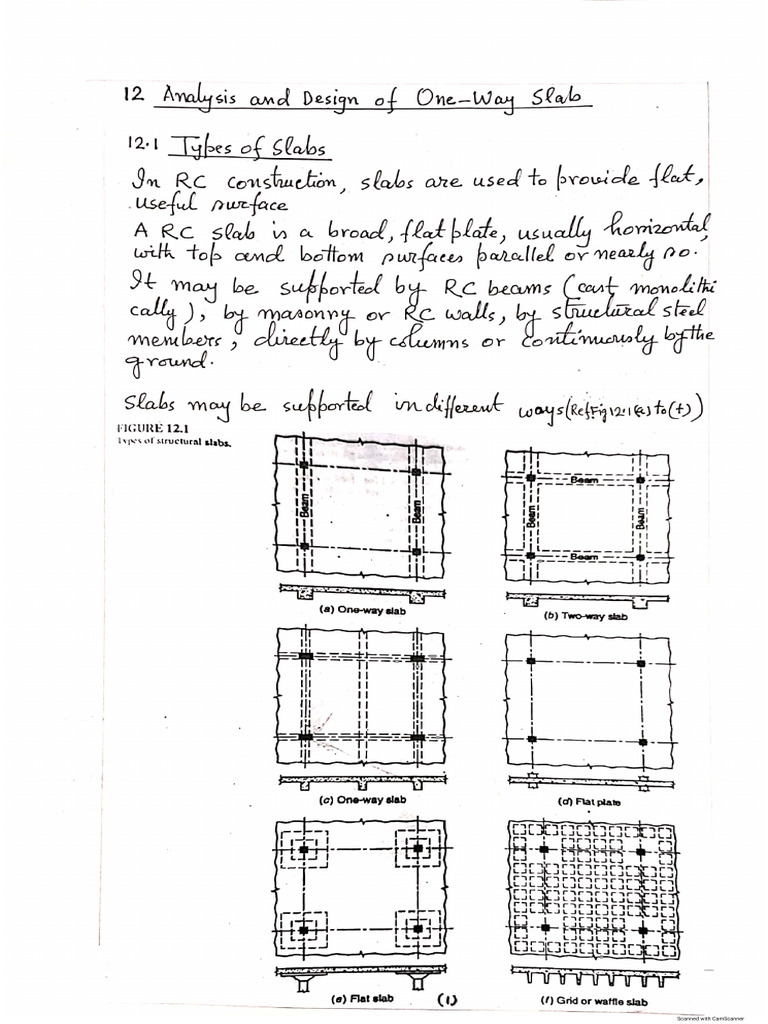 12 Analysis and Design of One-Way Slab
12.1 Types of Slabs
In RC construction, slabs are used to provide flat,
useful surface
A RC slab is a broad, flat plate, usually horizontal,
with top and bottom surfaces parallel or nearly so.
It may be supported by RC beams (cast monolithi
cally), by masonry or RC walls, by structural steel
members, directly by columns or continuously by the
ground.
Slabs may be supported in different ways (Ref Fig 12.1 (a) to (f))
FIGURE 12.1
Types of structural slabs.
Beam
Beam
(a) One-way slab
Beam
Beam
Beam
Beam
(b) Two-way slab
(c) One-way slab
(d) Flat plate
(e) Flat slab
(1)
(f) Grid or waffle slab
Scanned with CamScanner